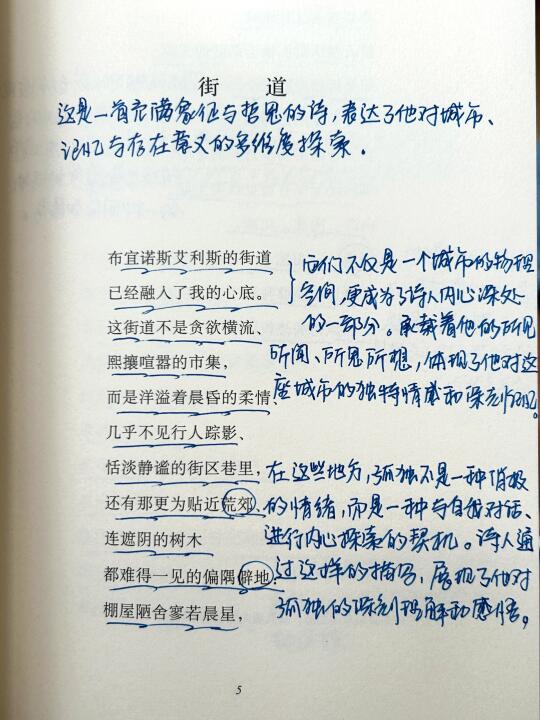 街 道
这是一首充满象征与哲思的诗,表达了他对城市、
记忆与存在意义的多维度探索.
布宜诺斯艾利斯的街道
已经融入了我的心底。
这街道不是贪欲横流、
熙攘喧嚣的市集,
而是洋溢着晨昏的柔情、
几乎不见行人踪影、
恬淡静谧的街区巷里,
还有那更为贴近荒郊、
连遮阴的树木
都难得一见的偏隅僻地:
棚屋陋舍寥若晨星,
它们不仅是一个城市的物理
空间,更成为了诗人内心深处
的一部分。承载着他的所见
所闻、所思所想,体现了他对这
座城市的独特情感和深刻记忆。
在这些地方,孤独不是一种消极
的情绪,而是一种与自我对话、
进行内心探索的契机。诗人通
过这样的描写,展现了他对
孤独的深刻理解和感悟。
5